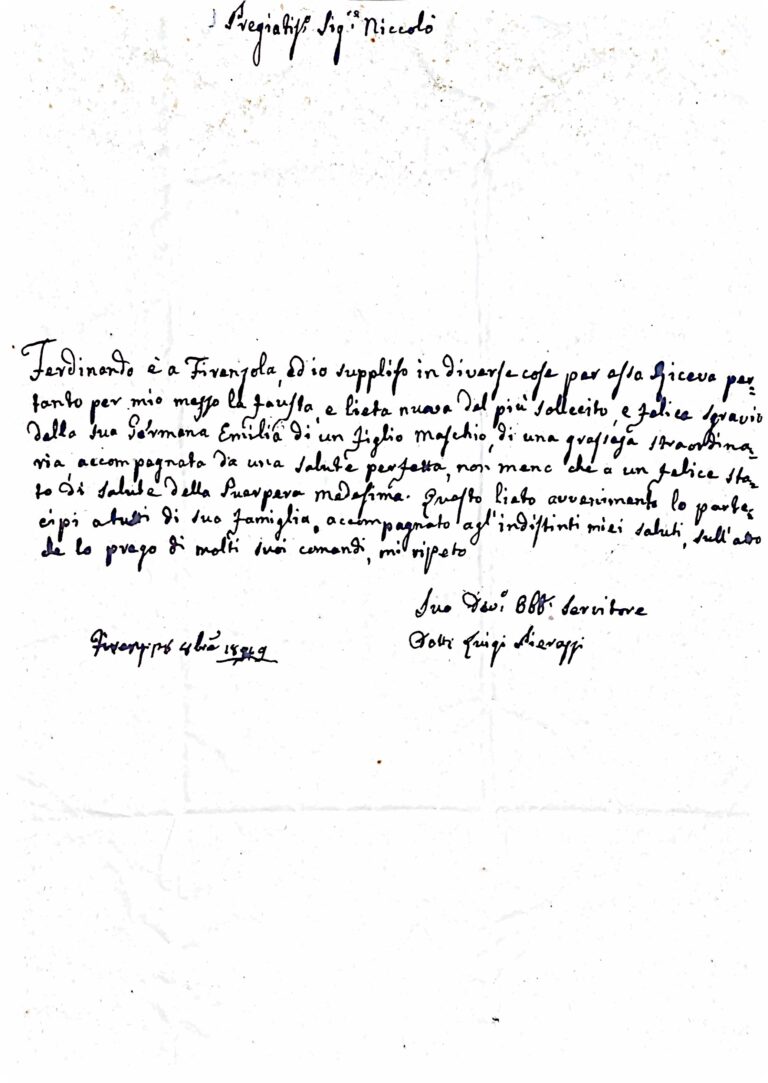 Pregiatiss. Sig.re Niccolò
Ferdinando è a Firenzola, ed io supplisco in diverse cose per essa Riceva per=
tanto per mio mezzo la fausta, e lieta nuova del più sollecito, e felice sgravio
della sua Germana Emilia di un figlio Maschio, di una grassezza straordina=
ria accompagnata da una salute perfetta, non meno che a un felice sta=
to di salute della Puerpera medesima. Questo lieto avvenimento lo parte=
cipi a tutti di sua famiglia, accompagnato agl'indistinti miei saluti, sull'atto
che lo prego di molti suoi comandi, mi ripeto
Suo Dev.o Obb. Servitore
Dott. Luigi Pierazzi